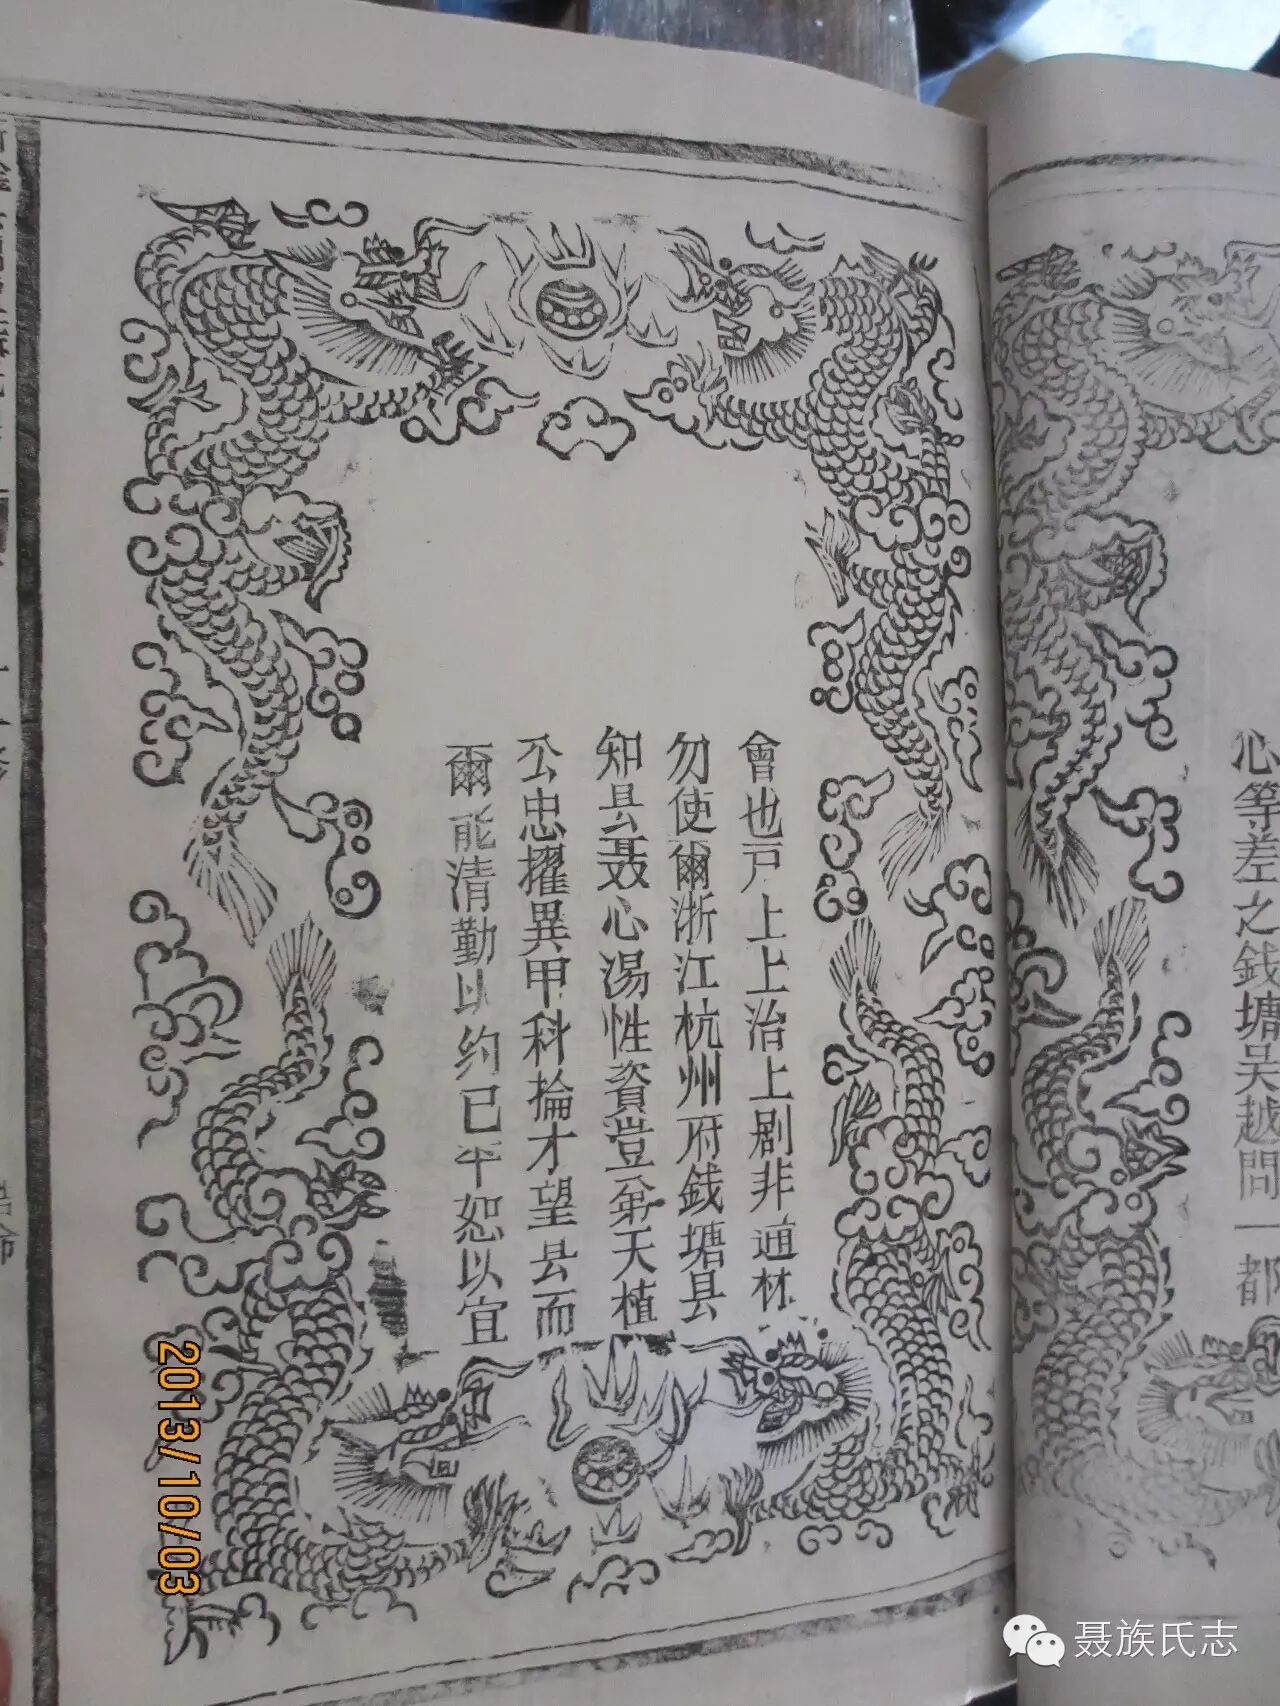 心等差之銭塘吴越間一都
會也戸上上治上剧非通材
勿使爾浙江杭州府銭塘县
知县聂心湯性資豈弟天植
公忠擢異甲科掄才望县而
爾能清勤以约已平恕以宜
诰命
2013/10/03
聂族氏志